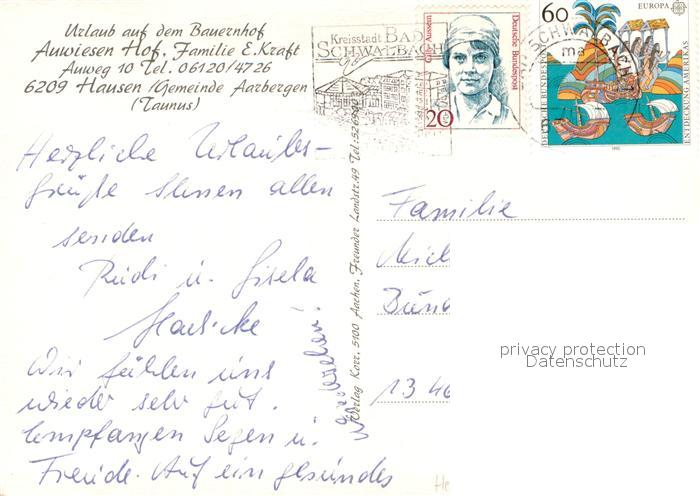 Urlaub auf dem Bauernhof
Auwiesen Hof, Familie E. Kraft
Auweg 10 Tel. 06120/4726
6209 Hausen /Gemeinde Aarbergen
(Taunus)
Kreisstadt BAD
SCHWALBACH
Cilly Aussem
Deutsche Bundespost
20
60
EUROPA
DEUTSCHE BUNDESPOST
ENTDECKUNG AMERIKAS
1992
SCHWALBACH
Herzliche Urlaubs-
grüße Ihnen allen
senden
Rudi u. Gisela
Wir fühlen uns
wieder sehr gut.
Empfangen Segen u.
Freude. Auf ein gesundes
Wiedersehen!
Verlag Korr, 5100 Aachen, Freunder Landstr. 49 Tel.: 526900
Familie
Mich
Bünd
13 40
privacy protection
Datenschutz
He